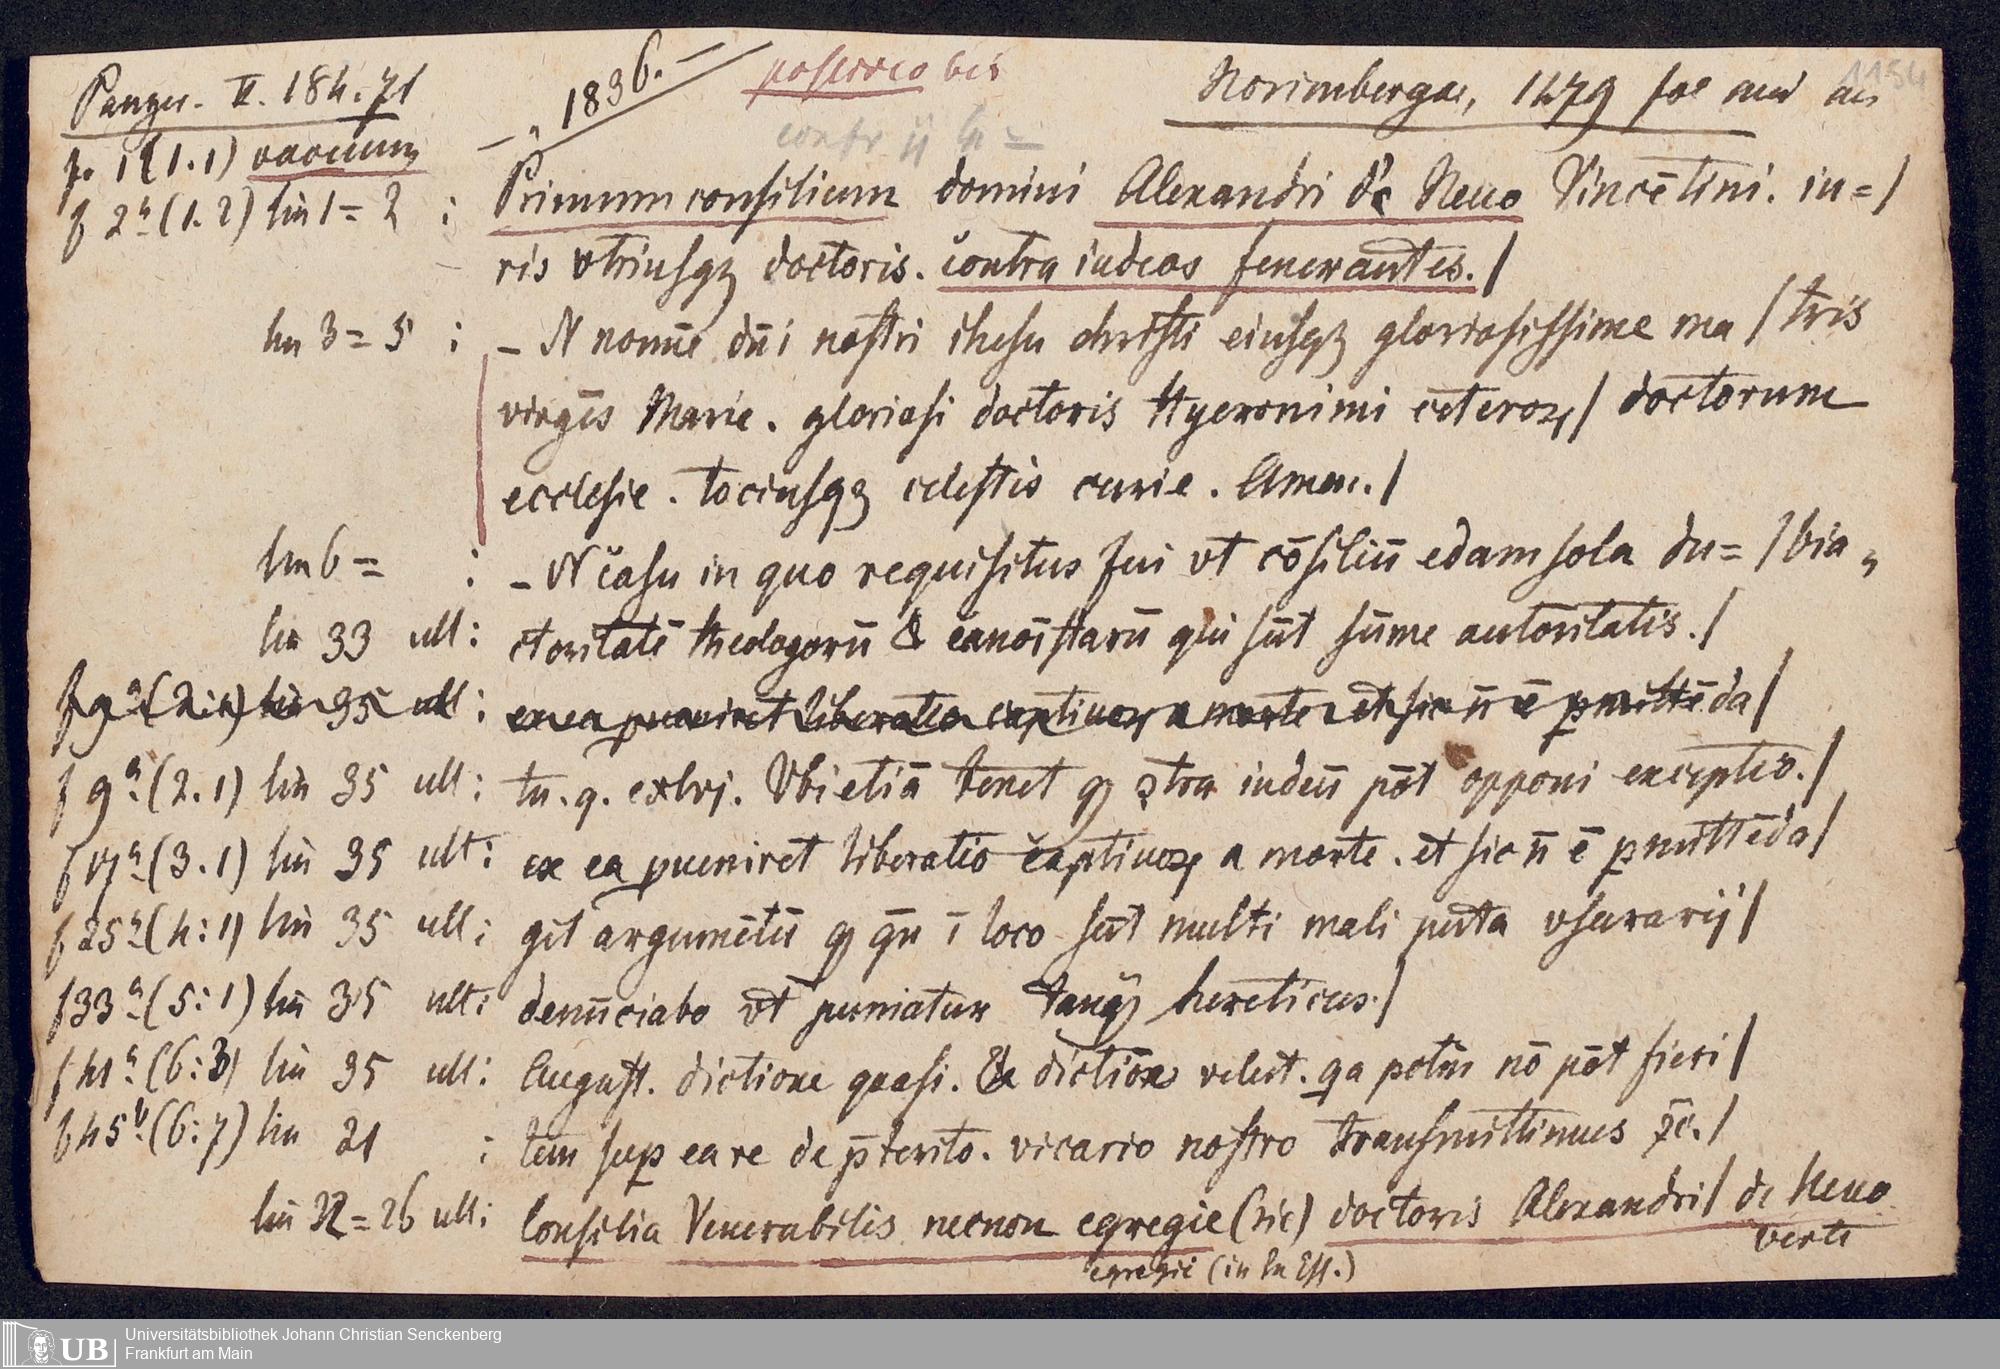 Panzer. II. 184. 71
1836.
bis
Norimbergae, 1479 fol
1154
contr
f. 1 (1.1) vacuum
f 2a (1.2) lin 1=2 : Primum consilium domini Alexandri de Neuo Vincētini. iu=/
ris vtriusqꝫ doctoris. contra iudeos fenerantes./
lin 3=5 : – N nomīe dn̄i nostri ihesu christi eiusqꝫ gloriosissime ma / tris
virgīs Marie. gloriosi doctoris Hyeronimi ceteroꝝ / doctorum
ecclesie. tociusqꝫ celestis curie. Amen./
lin 6= : – N casu in quo requisitus fui vt cōsiliū edam sola du= / bia
lin 33 ult: ctoritatē theologorū & canoīstarū qui sūt sūme autoritatis./
f 9a (2.1) lin 35 ult: ex ea pueniret liberatio captiuoꝝ a morte et sic n̄ ē pmittēda /
f 9a (2.1) lin 35 ult: tu. q. cxlvj. Vbi etiā tenet qꝫ ꝯtra iudeū pōt opponi exceptio./
f 17a (3.1) lin 35 ult: ex ea pueniret liberatio captiuoꝝ a morte. et sic n̄ ē pmittēda /
f 25a (4:1) lin 35 ult: git argumētū qꝫ qn̄ ī loco sūt multi mali puta vsurarij /
f 33a (5:1) lin 35 ult: denūciabo vt puniatur tanqꝫ hereticus./
f 41a (6:3) lin 35 ult: August. dictione quasi. & dictiōe velut. qa potiu nō pōt fieri /
f 45b (6:7) lin 21 : tem sup ea re de p̄terito. vicario nostro transmittimus ⁊c./
lin 22=26 ult: Consilia Venerabilis necnon egregie (sic) doctoris Alexandri / de Neuo
egregii (in Ex Eff.) verte
UB Universitätsbibliothek Johann Christian Senckenberg
Frankfurt am Main